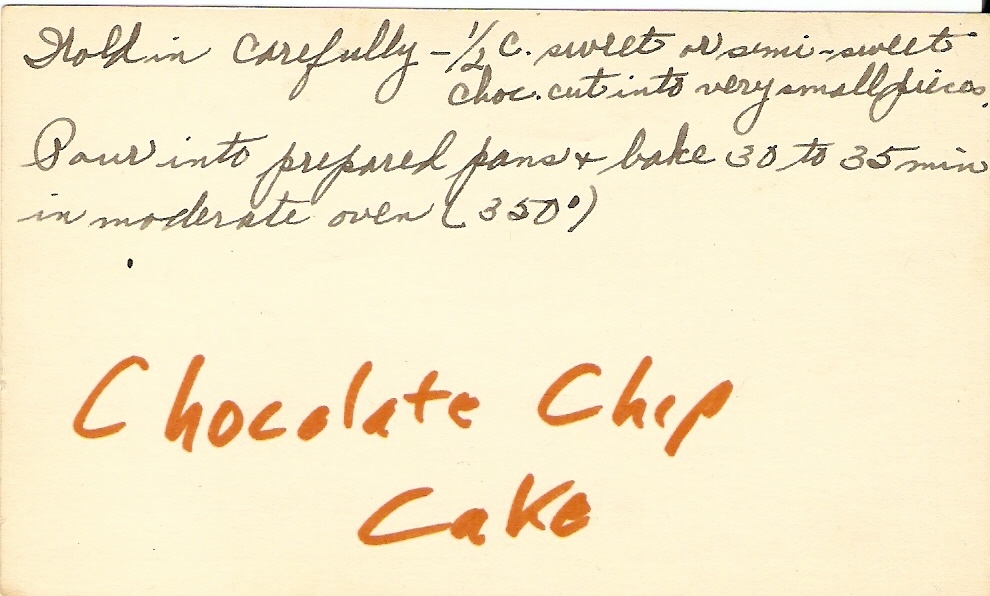 Fold in carefully - 1/2 c. sweet or semi-sweet
choc. cut into very small pieces.
Pour into prepared pans + bake 30 to 35 min
in moderate oven (350°)
Chocolate Chip
Cake